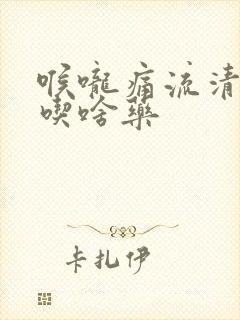 喉嚨痛流清
喫啥藥
卡扎伊